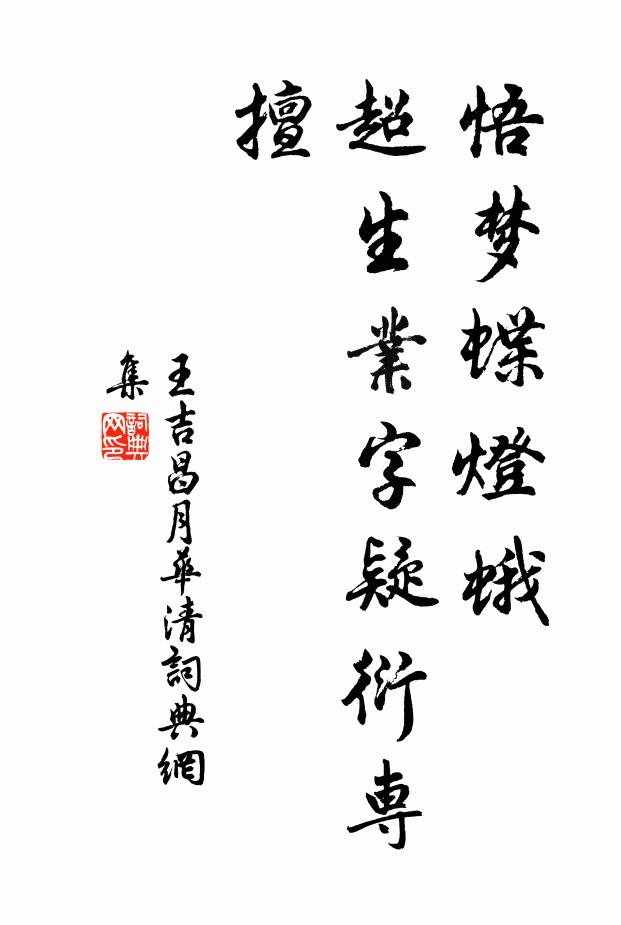 悟梦蝶燈蛾
超生業字疑衍専
擅
王吉昌月華清詞典網
集
詞典
网印